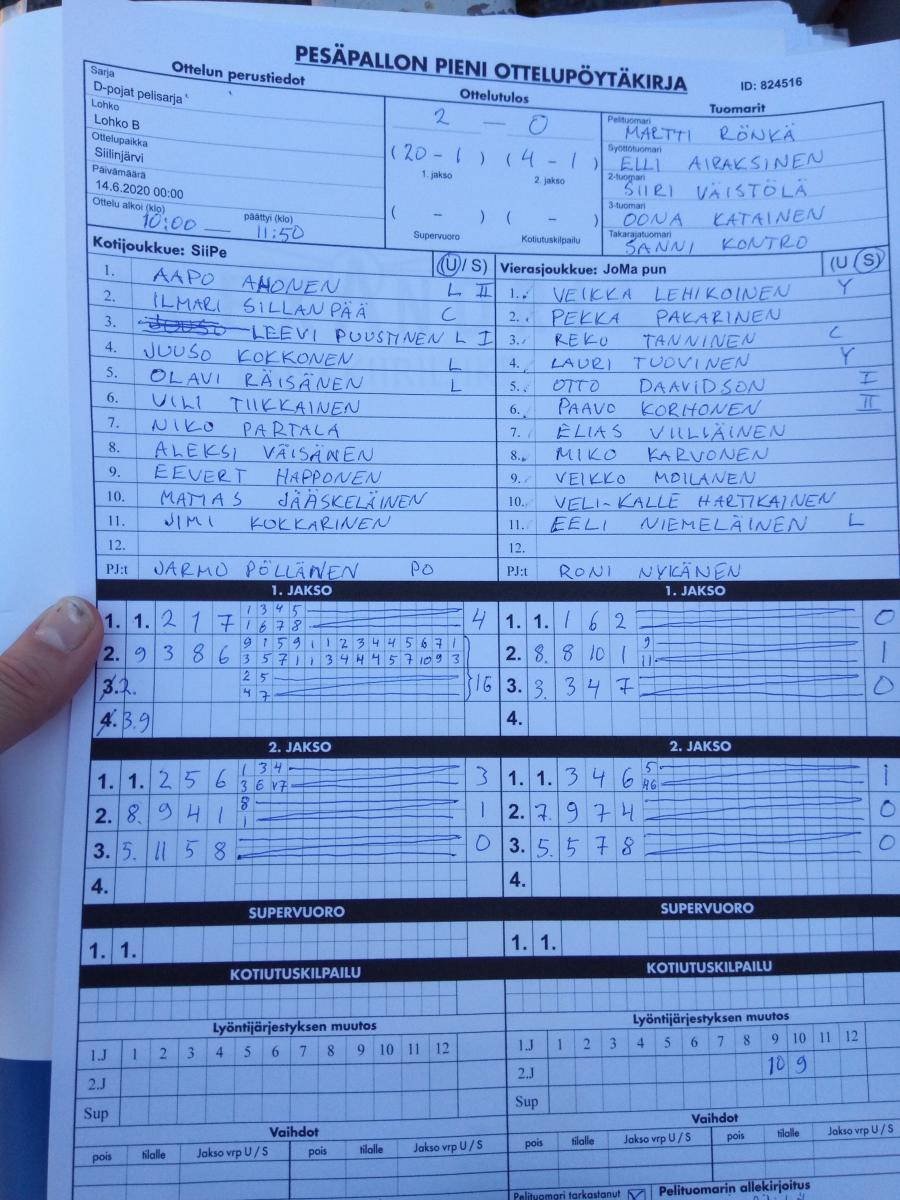 PESÄPALLON PIENI OTTELUPÖYTÄKIRJA
ID: 824516
Ottelun perustiedot
Sarja
D-pojat pelisarja
Lohko
Lohko B
Ottelupaikka
Siilinjärvi
Päivämäärä
14.6.2020 00:00
Ottelu alkoi (klo) päättyi (klo)
10:00 — 11:50
Ottelutulos
2 — 0
(20 - 1) (4 - 1)
1. jakso 2. jakso
( - ) ( - )
Supervuoro Kotiutuskilpailu
Tuomarit
Pelituomari
MARTTI RÖNKÄ
Syöttötuomari
ELLI AIRAKSINEN
2-tuomari
SIIRI VÄISTÖLÄ
3-tuomari
OONA KATAINEN
Takarajatuomari
SANNI KONTRO
Kotijoukkue: SiiPe (U / S)
1. AAPO AHONEN L II
2. ILMARI SILLANPÄÄ C
3. LEEVI PUUSTINEN L I
4. JUUSO KOKKONEN L
5. OLAVI RÄISÄNEN L
6. VILI TIIKKAINEN
7. NIKO PARTALA
8. ALEKSI VÄISÄNEN
9. EEVERT HAPPONEN
10. MATIAS JÄÄSKELÄINEN
11. JIMI KOKKARINEN
12.
PJ:t JARMO PÖLLÄNEN PO
Vierasjoukkue: JoMa pun (U / S)
1. VEIKKA LEHIKOINEN Y
2. PEKKA PAKARINEN
3. REKO TANNINEN C
4. LAURI TUOVINEN Y
5. OTTO DAAVIDSON I
6. PAAVO KORHONEN II
7. ELIAS VILLIÄINEN
8. MIKO KARVONEN
9. VEIKKO MOILANEN
10. VELI-KALLE HARTIKAINEN
11. EELI NIEMELÄINEN L
12.
PJ:t RONI NYKÄNEN
1. JAKSO
1. 1. 2 1 7 1 3 4 5 4
1 6 7 8
2. 9 3 8 6 9 1 5 9 1 1 2 3 4 4 5 6 7 1
3 5 7 1 1 3 4 4 4 5 7 10 9 3
3. 2. 2 5 16
4 7
4. 3.9
1. JAKSO
1. 1. 1 6 2 0
2. 8. 8 10 1 9 1
11
3. 3. 3 4 7 0
4.
2. JAKSO
1. 1. 2 5 6 1 3 4 3
3 6 7
2. 8. 9 4 1 8 1
1
3. 5. 11 5 8 0
4.
2. JAKSO
1. 1. 3 4 6 5 1
6
2. 7. 9 7 4 0
3. 5. 5 7 8 0
4.
SUPERVUORO
1. 1.
SUPERVUORO
1. 1.
KOTIUTUSKILPAILU
KOTIUTUSKILPAILU
Lyöntijärjestyksen muutos
1.J 1 2 3 4 5 6 7 8 9 10 11 12
2.J
Sup
Lyöntijärjestyksen muutos
1.J 1 2 3 4 5 6 7 8 9 10 11 12
2.J 10 9
Sup
Vaihdot
pois tilalle Jakso vrp U / S pois tilalle Jakso vrp U / S
Vaihdot
pois tilalle Jakso vrp U / S pois tilalle Jakso vrp U / S
Pelituomari tarkastanut
Pelituomarin allekirjoitus